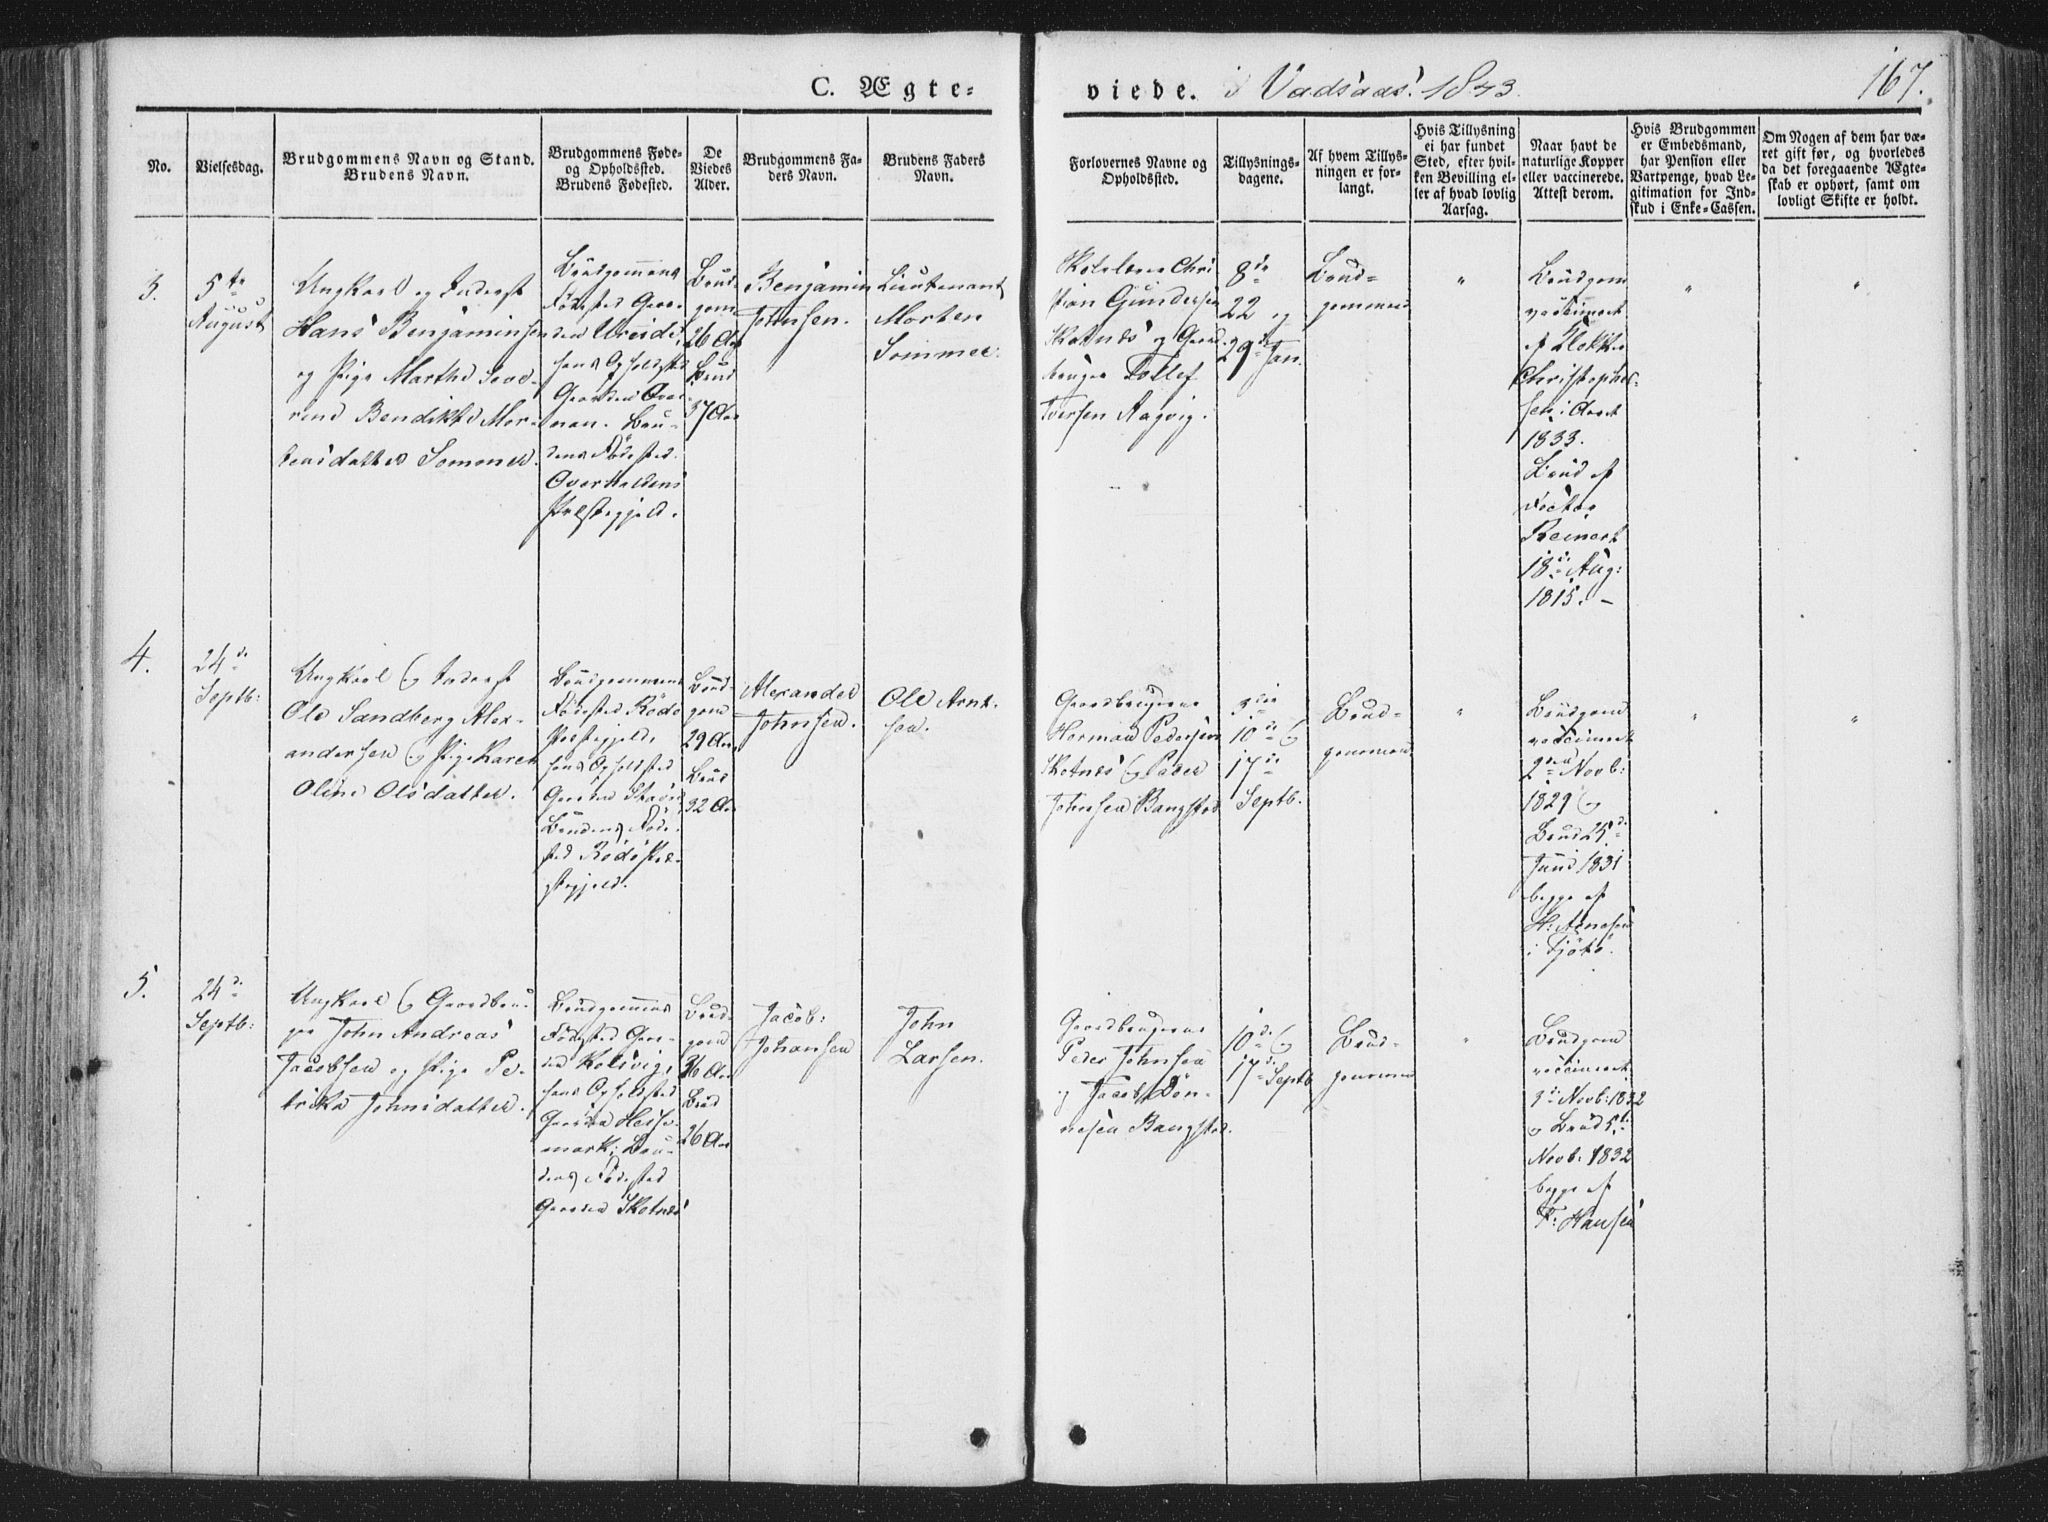 C. Ægte-
viede. i Vadsaas. 1843.
167.
No.
Vielsesdag.
Brudgommens Navn og Stand.
Brudens Navn.
Brudgommens Føde-
og Opholdssted.
Brudens Fødested.
De
Viedes
Alder.
Brudgommens Fa-
ders Navn.
Brudens Faders
Navn.
Forlovernes Navne og
Opholdssted.
Tillysnings-
dagene.
Af hvem Tillys-
ningen er for-
langt.
Hvis Tillysning
ei har fundet
Sted, efter hvil-
ken Bevilling el-
ler af hvad lovlig
Aarsag.
Naar havt de
naturlige Kopper
eller vaccinerede.
Attest derom.
Hvis Brudgommen
er Embedsmand,
har Pension eller
Vartpenge, hvad Le-
gitimation for Ind-
skud i Enke-Cassen.
Om Nogen af dem har væ-
ret gift før, og hvorledes
da det foregaaende Ægte-
skab er ophørt, samt om
lovligt Skifte er holdt.
3.
5te
August
Ungkarl og Inderst
Hans Benjaminsen
og Pige Marthe Seve-
rine Bendikte Mor-
tensdatter Sommer.
Brudgommens
Fødested Gaar-
den
hans Opholdsted
Gaarden Over-
nan. Bru-
dens Fødested
Overhaldens
Præstegjeld.
Brud-
gom
26 Aar
Brud
37 Aar
Benjamin
Johnsen.
Lieutenant
Morten
Sommer.
Skolelærer Chri
stian Gundersen
Skotnæs og Gaard-
bruger Tollef
Iversen Aagvig.
8de
22 og
29de Jan.
Brud-
gommen
"
Brudgom
vaccineret
af Klokker
Christopher-
sen i Aaret
1833.
Brud af
Doctor
Reinert
18de Aug:
1815. –
"
"
4.
24de
Septb:
Ungkarl og Inderst
Ole Sandberg Alex-
andersen og Pige Karen
Oline Olsdatter.
Brudgommens
Fødested Rødø
Præstegjeld,
hans Opholdsted
Gaarden
Brudens Føde-
sted Rødø Præ-
stegjeld.
Brud-
gom
29 Aar
Brud
32 Aar
Alexander
Johnsen.
Ole Arnt-
sen.
Gaardbrugerne
Herman Pedersen
Skotnæs og Peder
Johnsen Bangstad
3die
10de og
17de
Septb.
Brud-
gommen
"
Brudgom
vaccineret
2den Novb:
1829 og
Brud 25de
Juni 1831
begge af
H: Arnesen
i Tjøtø.
"
"
5.
24de
Septb:
Ungkarl og Gaardbru-
ger John Andreas
Jacobsen og Pige Pe-
trika Johnsdatter.
Brudgommens
Fødested Gaar-
den Kolsvig,
hans Opholdsted
Gaarden Hesse-
mark; Bru-
dens Fødested
Gaarden Skotnæs
Brud-
gom
36 Aar
Brud
26 Aar
Jacob
Johansen
John
Larsen.
Gaardbrugerne
Peder Johnsen
og Jacob Døn-
nesen Bangstad.
10de og
17de Septb
Brud-
gommen
"
Brudgom
vaccineret
3de Novb: 1832
og Brud 5te
Novb: 1832
begge af
F: Hansen